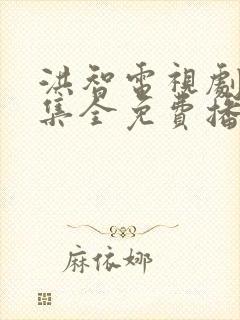 洪智電視劇
集全免費播
麻依娜